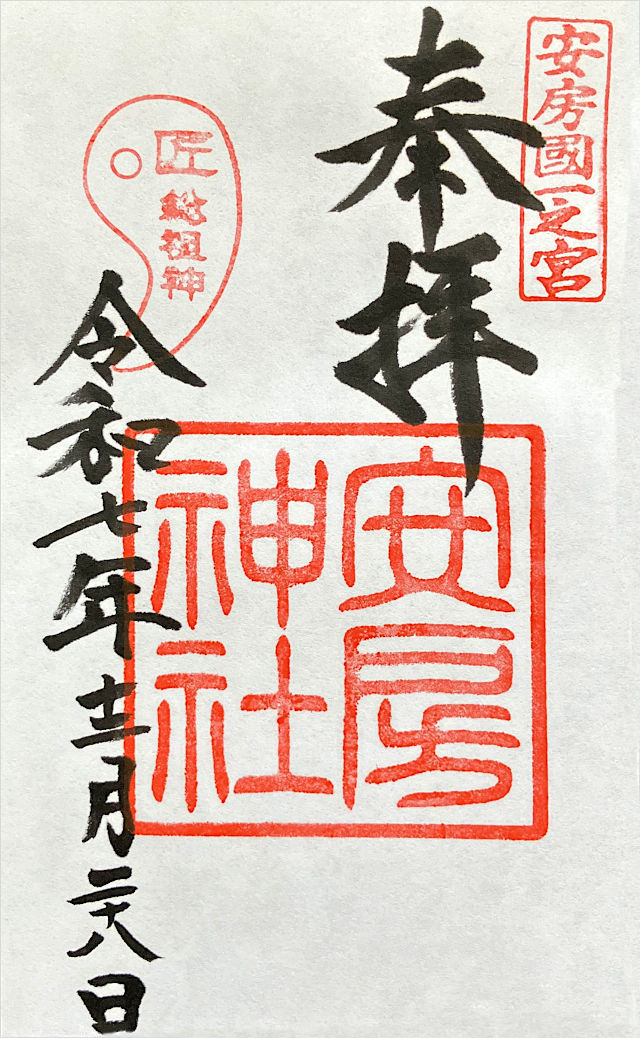 安房國一之宮
奉拝
安房
神社
匠
総祖神
令和七年十二月二十八日